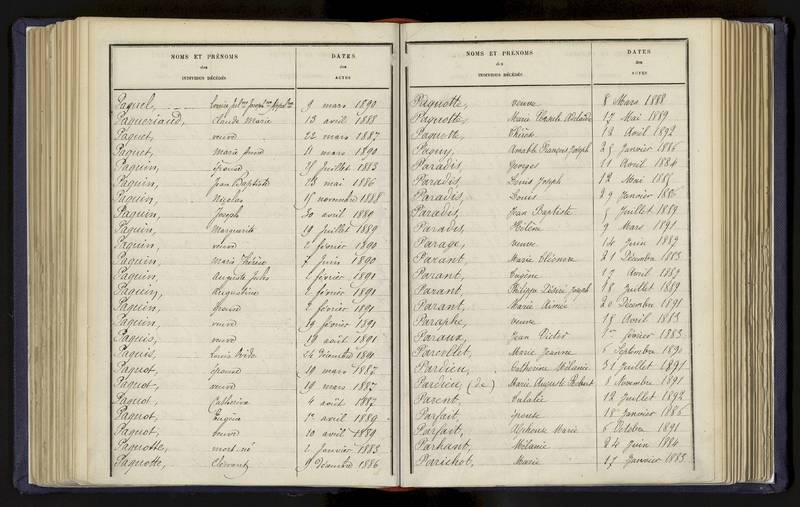 NOMS ET PRÉNOMS
des
INDIVIDUS DÉCÉDÉS
DATES
des
ACTES
Paquel, 9 mars 1890
Paqueriaud, Claude Marie 13 avril 1888
Paquet, veuve 22 mars 1887
Paquet, Marie Anne 11 mars 1890
Paquin, Juillet 1883
Paquin, Jean Baptiste 23 mai 1886
Paquin, Nicolas 15 novembre 1888
Paquin, Joseph 30 avril 1889
Paquin, Marguerite 19 Juillet 1889
Paquin, veuve février 1890
Paquin, Marie Thérèse 7 Juin 1890
Paquin, Auguste Jules 2 février 1891
Paquin, Augustine 2 février 1891
Paquin, 2 février 1891
Paquin, veuve 19 février 1891
Paquis, veuve 19 août 1891
Paquis, 24 décembre 1891
Paquot, 19 mars 1887
Paquot, veuve 19 mars 1887
Paquot, Catherine 4 août 1887
Paquot, Eugène avril 1889
Paquot, veuve 10 avril 1889
Paquotte, mort-né 2 Janvier 1883
Paquotte, Clément 9 décembre 1886
NOMS ET PRÉNOMS
des
INDIVIDUS DÉCÉDÉS
DATES
des
ACTES
Paquotte, veuve 8 Mars 1888
Paquotte, Marie Adelaide 17 Mai 1889
Paquotte, Avril 1892
Pagny, Amable François Joseph 25 Janvier 1886
Paradis, Georges 11 Avril 1884
Paradis, Louis Joseph 12 Mai
Paradis, Louis 29 Janvier 1886
Paradis, Jean Baptiste Juillet 1889
Paradis, Hélène 9 Mars 1891
Parage, veuve 14 Juin 1889
Parant, Marie Eléonore 21 Décembre 1883
Parant, Eugène 17 Avril 1889
Parant, Philippe Désiré Joseph 18 Juillet 1889
Parant, Marie Aimée 20 Décembre 1891
Paraphe, veuve 18 Avril 1883
Paraux, Jean Victor 1er Février 1883
Parcollet, Marie Jeanne 6 Septembre 1890
Pardieu, Catherine Mélanie 31 Juillet 1891
Pardieu (de) Marie Auguste 8 Novembre 1891
Parent, Eulalie 12 Juillet 1892
Parfait, épouse 18 Janvier 1886
Parfait, Alphonse Marie 6 Octobre 1891
Parhant, Mélanie 24 Juin 1884
Parichot, Marie 17 Janvier 1883